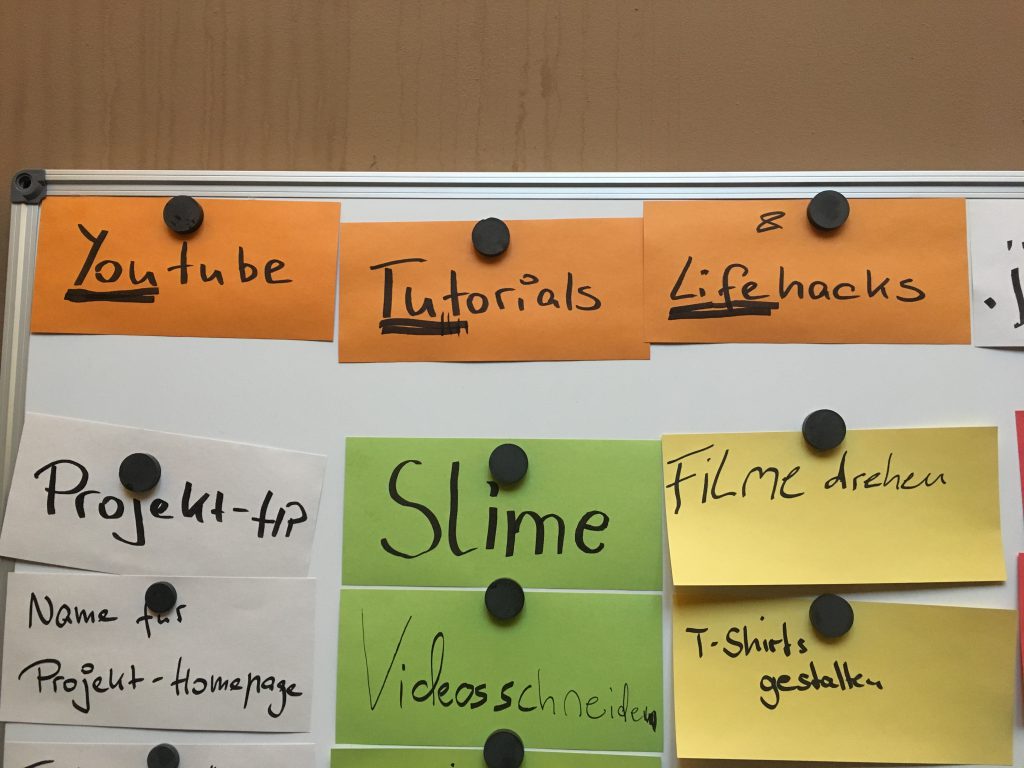 Youtube
Tutorials
&
Lifehacks
Projekt-HP
Slime
FiLME drehen
Name für
Projekt-Homepage
Videosschneiden
T-Shirts
gestalten